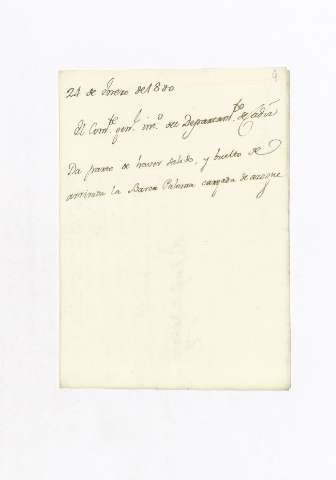 9
24 de Enero de 1800
El Com.te gen.l int.o del Departam.to de Cadiz
Da parte de haver salido, y buelto de
arrivada la Barca Paloma cargada de azogue